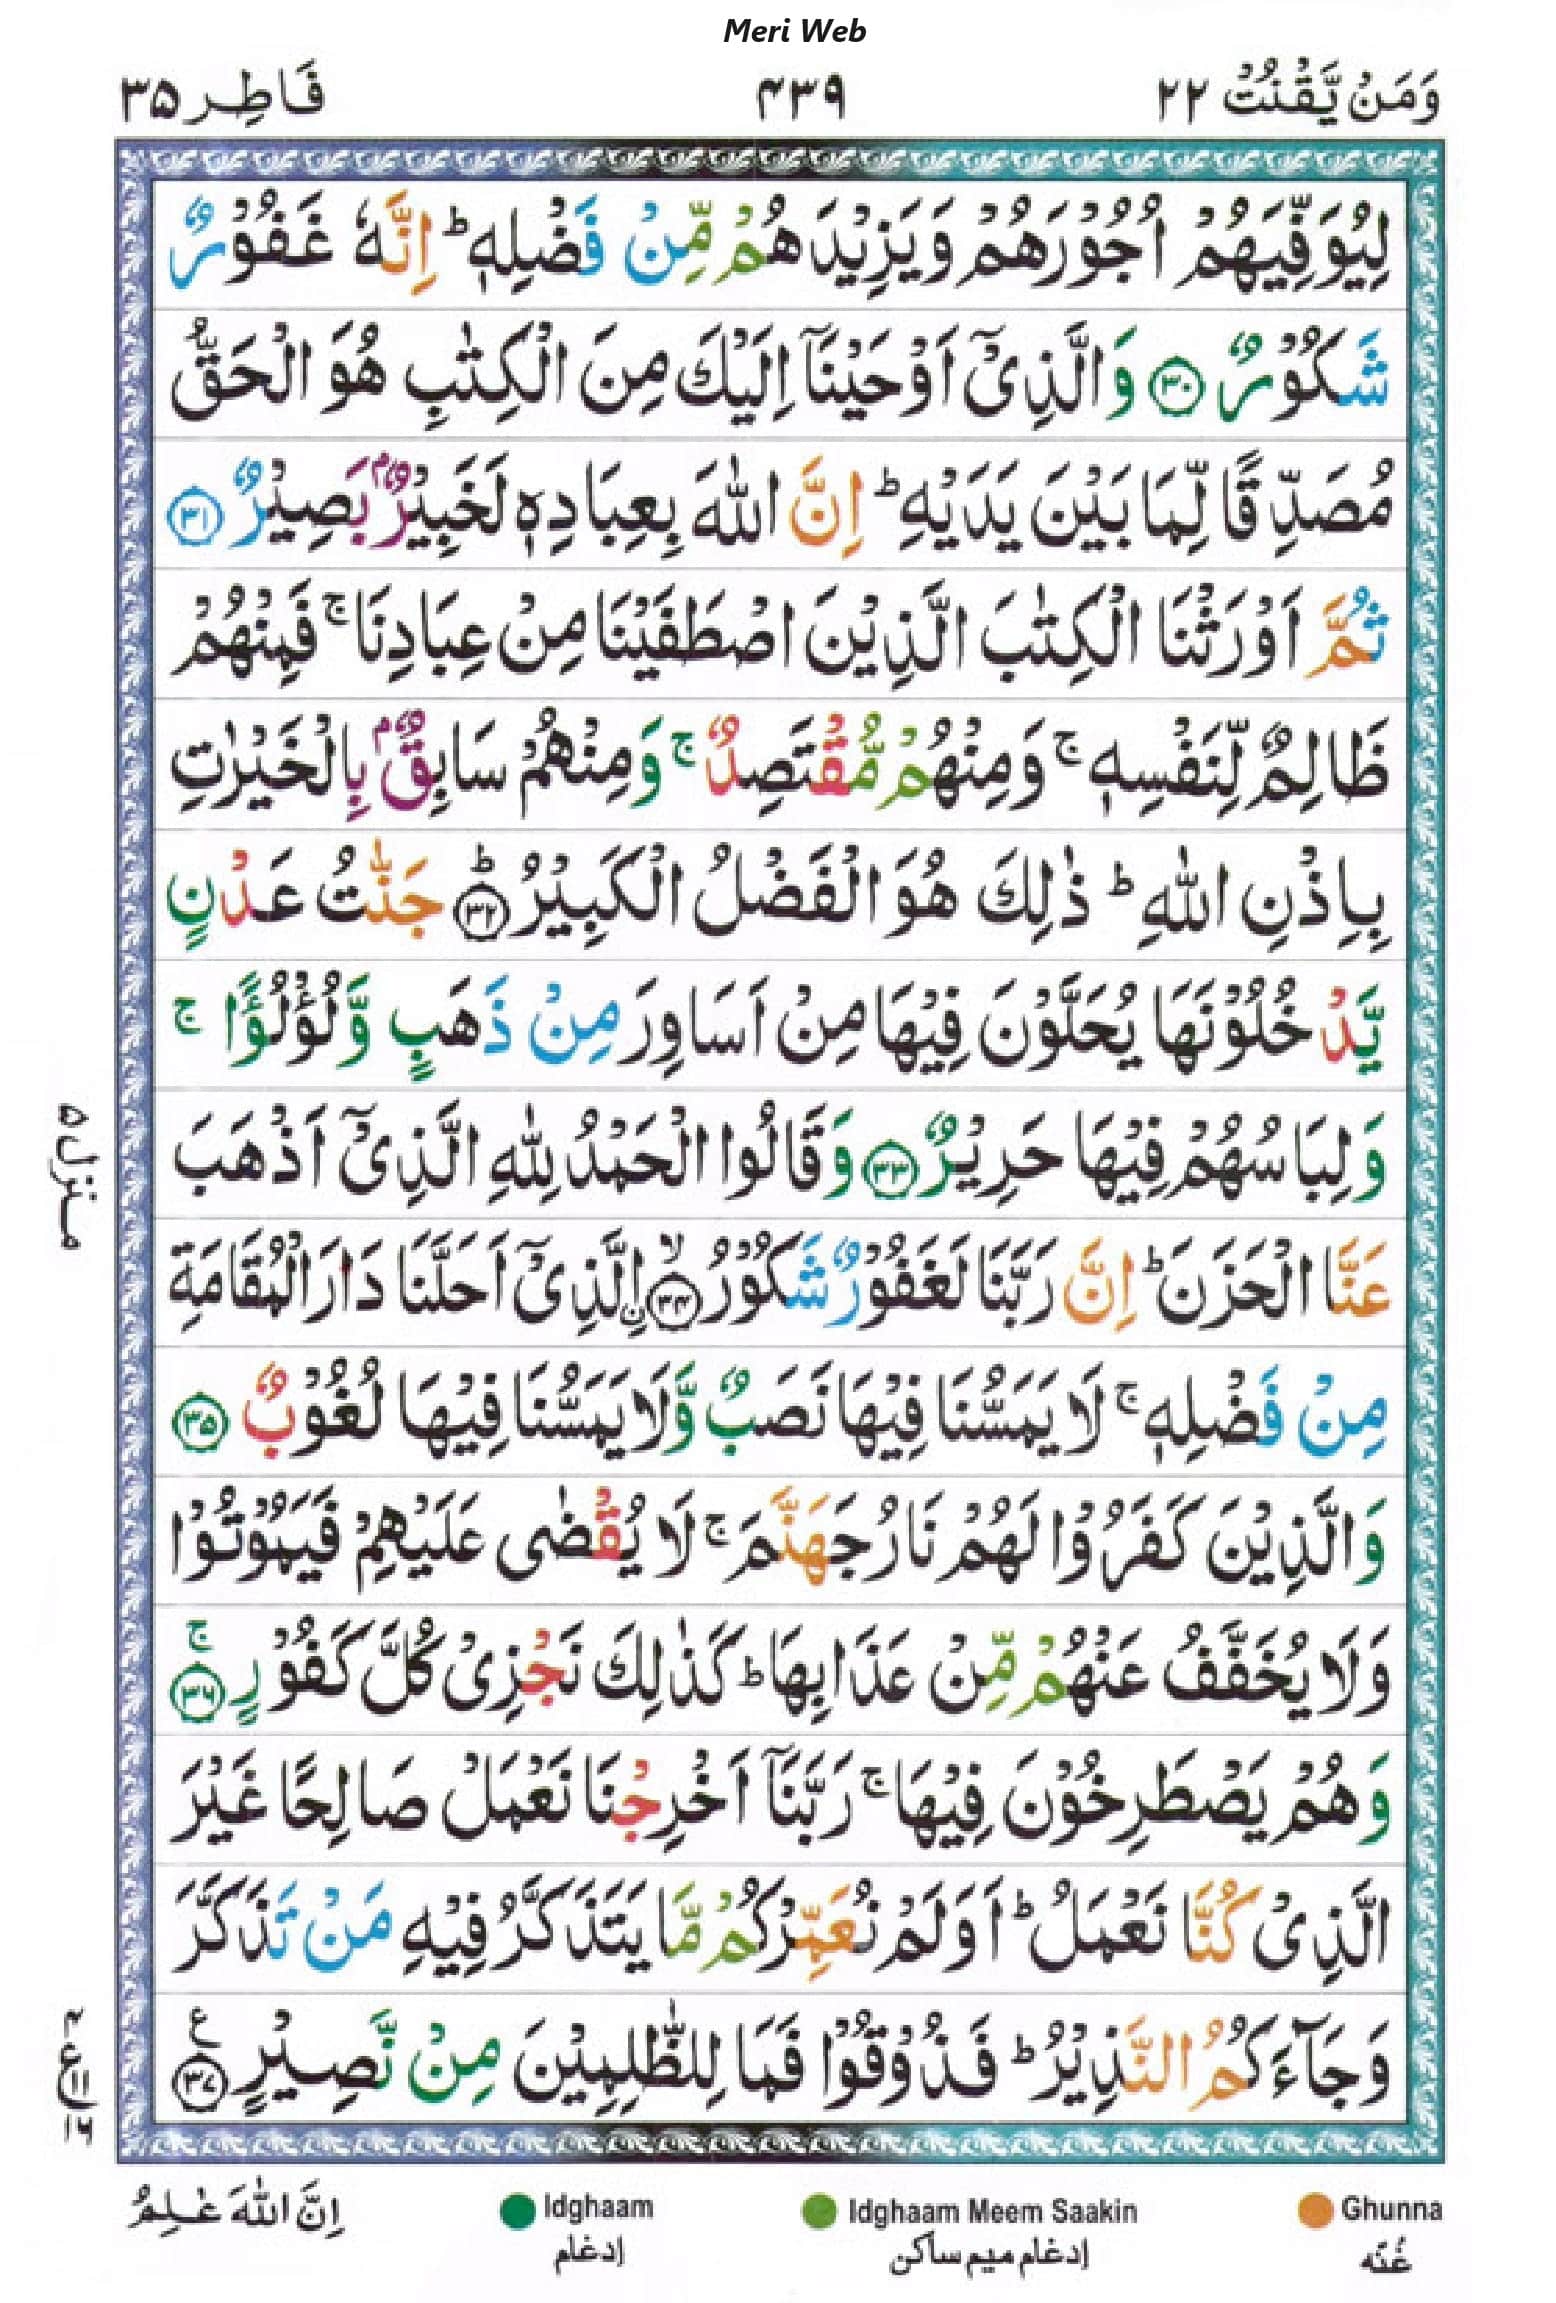 Meri Web
وَمَنْ يَّقْنُتْ ٢٢ ٤٣٩ فَاطِر ٣٥
لِيُوَفِّيَهُمْ اُجُوْرَهُمْ وَيَزِيْدَهُمْ مِّنْ فَضْلِهٖ ؕ اِنَّهٗ غَفُوْرٌ
شَكُوْرٌ ﴿٣٠﴾ وَالَّذِىْۤ اَوْحَيْنَاۤ اِلَيْكَ مِنَ الْكِتٰبِ هُوَ الْحَقُّ
مُصَدِّقًا لِّمَا بَيْنَ يَدَيْهِ ؕ اِنَّ اللّٰهَ بِعِبَادِهٖ لَخَبِيْرٌۢ بَصِيْرٌ ﴿٣١﴾
ثُمَّ اَوْرَثْنَا الْكِتٰبَ الَّذِيْنَ اصْطَفَيْنَا مِنْ عِبَادِنَا ۚ فَمِنْهُمْ
ظَالِمٌ لِّنَفْسِهٖ ۚ وَمِنْهُمْ مُّقْتَصِدٌ ۚ وَمِنْهُمْ سَابِقٌۢ بِالْخَيْرٰتِ
بِاِذْنِ اللّٰهِ ؕ ذٰلِكَ هُوَ الْفَضْلُ الْكَبِيْرُ ؕ ﴿٣٢﴾ جَنّٰتُ عَدْنٍ
يَّدْخُلُوْنَهَا يُحَلَّوْنَ فِيْهَا مِنْ اَسَاوِرَ مِنْ ذَهَبٍ وَّلُؤْلُؤًا ۚ
وَلِبَاسُهُمْ فِيْهَا حَرِيْرٌ ﴿٣٣﴾ وَقَالُوا الْحَمْدُ لِلّٰهِ الَّذِىْۤ اَذْهَبَ
عَنَّا الْحَزَنَ ؕ اِنَّ رَبَّنَا لَغَفُوْرٌ شَكُوْرُ ۙ ﴿٣٤﴾ اۨلَّذِىْۤ اَحَلَّنَا دَارَ الْمُقَامَةِ
مِنْ فَضْلِهٖ ۚ لَا يَمَسُّنَا فِيْهَا نَصَبٌ وَّلَا يَمَسُّنَا فِيْهَا لُغُوْبٌ ﴿٣٥﴾
وَالَّذِيْنَ كَفَرُوْا لَهُمْ نَارُ جَهَنَّمَ ۚ لَا يُقْضٰى عَلَيْهِمْ فَيَمُوْتُوْا
وَلَا يُخَفَّفُ عَنْهُمْ مِّنْ عَذَابِهَا ؕ كَذٰلِكَ نَجْزِىْ كُلَّ كَفُوْرٍ ۚ ﴿٣٦﴾
وَهُمْ يَصْطَرِخُوْنَ فِيْهَا ۚ رَبَّنَاۤ اَخْرِجْنَا نَعْمَلْ صَالِحًا غَيْرَ
الَّذِىْ كُنَّا نَعْمَلُ ؕ اَوَلَمْ نُعَمِّرْكُمْ مَّا يَتَذَكَّرُ فِيْهِ مَنْ تَذَكَّرَ
وَجَآءَكُمُ النَّذِيْرُ ؕ فَذُوْقُوْا فَمَا لِلظّٰلِمِيْنَ مِنْ نَّصِيْرٍ ع ﴿٣٧﴾
منزل ٥
اِنَّ اللّٰهَ عٰلِمُ
Idghaam
إدغام
Idghaam Meem Saakin
إدغام ميم ساكن
Ghunna
غُنّه